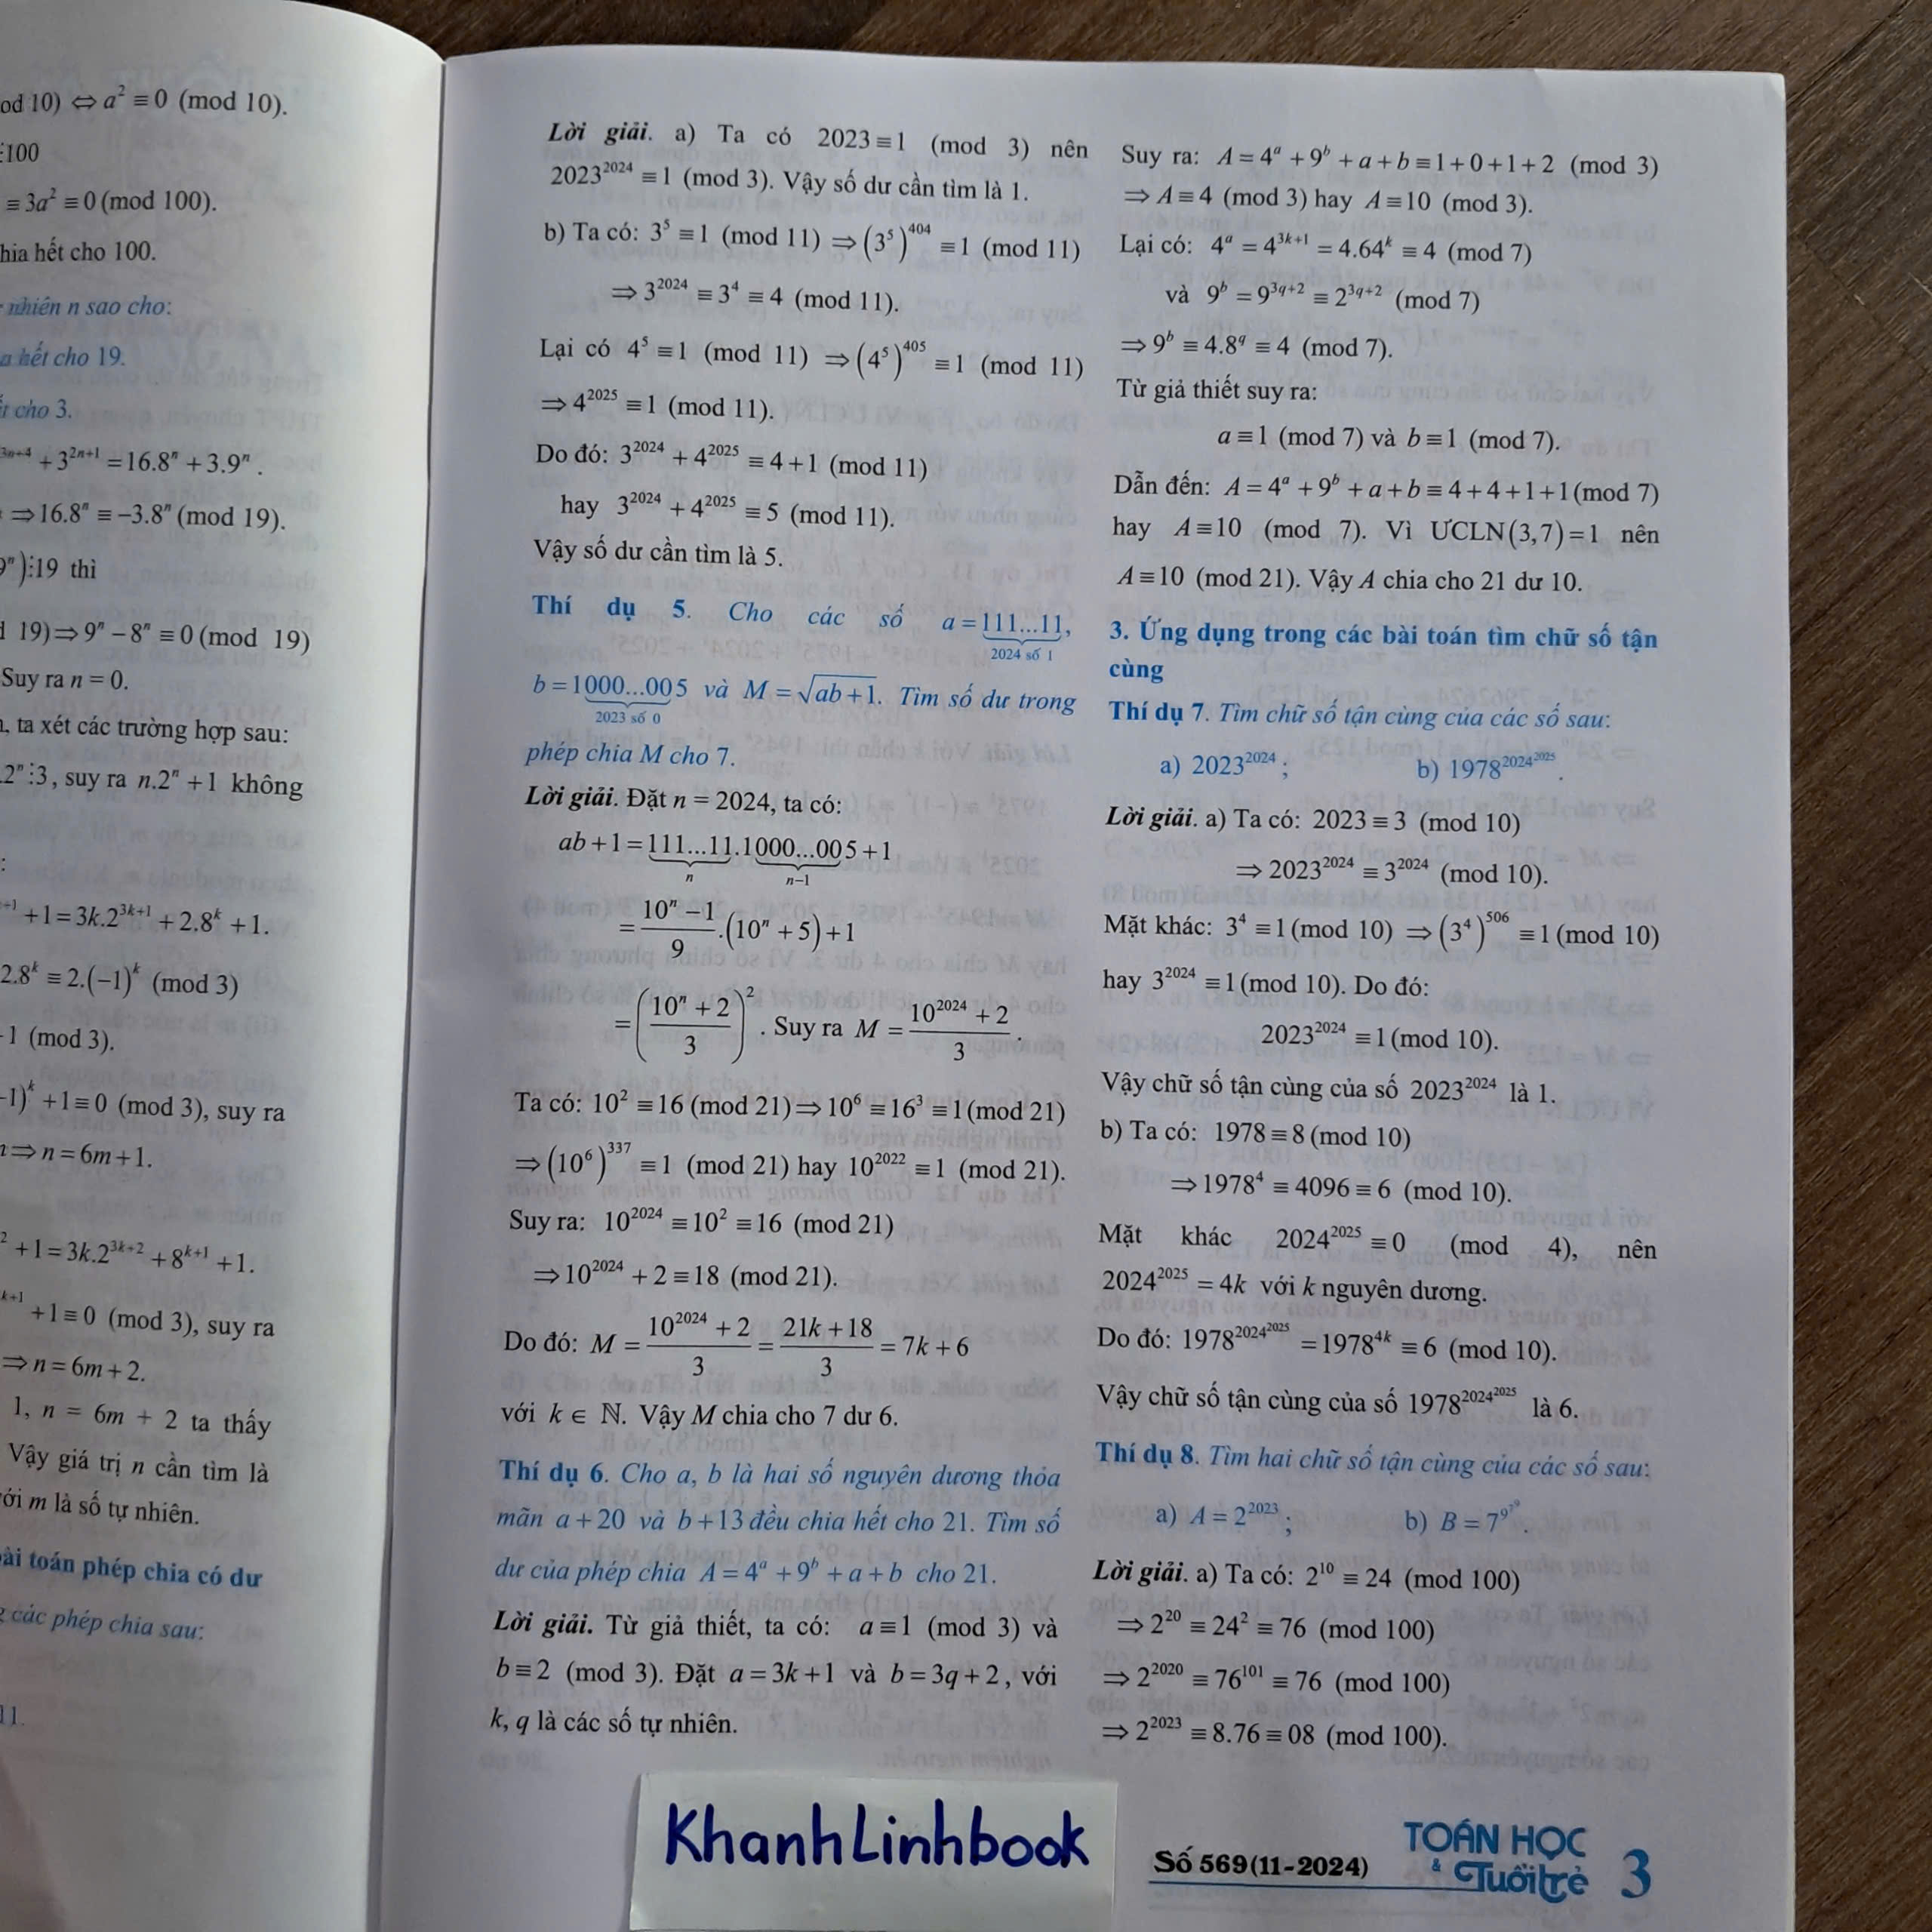 od 10) ⇔ a² ≡ 0 (mod 10).
⋮100
≡ 3a² ≡ 0 (mod 100).
hia hết cho 100.
nhiên n sao cho:
a hết cho 19.
t cho 3.
³ⁿ⁺⁴ + 3²ⁿ⁺¹ = 16.8ⁿ + 3.9ⁿ.
⇒ 16.8ⁿ ≡ −3.8ⁿ (mod 19).
9ⁿ)⋮19 thì
d 19) ⇒ 9ⁿ − 8ⁿ ≡ 0 (mod 19)
Suy ra n = 0.
, ta xét các trường hợp sau:
.2ⁿ⋮3, suy ra n.2ⁿ + 1 không
:
⁺¹ + 1 = 3k.2³ᵏ⁺¹ + 2.8ᵏ + 1.
2.8ᵏ ≡ 2.(−1)ᵏ (mod 3)
1 (mod 3).
−1)ᵏ + 1 ≡ 0 (mod 3), suy ra
⇒ n = 6m + 1.
² + 1 = 3k.2³ᵏ⁺² + 8ᵏ⁺¹ + 1.
ᵏ⁺¹ + 1 ≡ 0 (mod 3), suy ra
⇒ n = 6m + 2.
1, n = 6m + 2 ta thấy
Vậy giá trị n cần tìm là
ới m là số tự nhiên.
ài toán phép chia có dư
các phép chia sau:
11.
Lời giải. a) Ta có 2023 ≡ 1 (mod 3) nên
2023²⁰²⁴ ≡ 1 (mod 3). Vậy số dư cần tìm là 1.
b) Ta có: 3⁵ ≡ 1 (mod 11) ⇒ (3⁵)⁴⁰⁴ ≡ 1 (mod 11)
⇒ 3²⁰²⁴ ≡ 3⁴ ≡ 4 (mod 11).
Lại có 4⁵ ≡ 1 (mod 11) ⇒ (4⁵)⁴⁰⁵ ≡ 1 (mod 11)
⇒ 4²⁰²⁵ ≡ 1 (mod 11).
Do đó: 3²⁰²⁴ + 4²⁰²⁵ ≡ 4 + 1 (mod 11)
hay 3²⁰²⁴ + 4²⁰²⁵ ≡ 5 (mod 11).
Vậy số dư cần tìm là 5.
Thí dụ 5. Cho các số a = 111...11,
2024 số 1
b = 1000...005 và M = √(ab + 1). Tìm số dư trong
2023 số 0
phép chia M cho 7.
Lời giải. Đặt n = 2024, ta có:
ab + 1 = 111...11.1000...005 + 1
n n−1
= (10ⁿ − 1)/9 .(10ⁿ + 5) + 1
= ((10ⁿ + 2)/3)². Suy ra M = (10²⁰²⁴ + 2)/3.
Ta có: 10² ≡ 16 (mod 21) ⇒ 10⁶ ≡ 16³ ≡ 1 (mod 21)
⇒ (10⁶)³³⁷ ≡ 1 (mod 21) hay 10²⁰²² ≡ 1 (mod 21).
Suy ra: 10²⁰²⁴ ≡ 10² ≡ 16 (mod 21)
⇒ 10²⁰²⁴ + 2 ≡ 18 (mod 21).
Do đó: M = (10²⁰²⁴ + 2)/3 = (21k + 18)/3 = 7k + 6
với k ∈ ℕ. Vậy M chia cho 7 dư 6.
Thí dụ 6. Cho a, b là hai số nguyên dương thỏa
mãn a + 20 và b + 13 đều chia hết cho 21. Tìm số
dư của phép chia A = 4ᵃ + 9ᵇ + a + b cho 21.
Lời giải. Từ giả thiết, ta có: a ≡ 1 (mod 3) và
b ≡ 2 (mod 3). Đặt a = 3k + 1 và b = 3q + 2, với
k, q là các số tự nhiên.
Suy ra: A = 4ᵃ + 9ᵇ + a + b ≡ 1 + 0 + 1 + 2 (mod 3)
⇒ A ≡ 4 (mod 3) hay A ≡ 10 (mod 3).
Lại có: 4ᵃ = 4³ᵏ⁺¹ = 4.64ᵏ ≡ 4 (mod 7)
và 9ᵇ = 9^(3q+2) ≡ 2^(3q+2) (mod 7)
⇒ 9ᵇ ≡ 4.8^q ≡ 4 (mod 7).
Từ giả thiết suy ra:
a ≡ 1 (mod 7) và b ≡ 1 (mod 7).
Dẫn đến: A = 4ᵃ + 9ᵇ + a + b ≡ 4 + 4 + 1 + 1 (mod 7)
hay A ≡ 10 (mod 7). Vì ƯCLN(3,7) = 1 nên
A ≡ 10 (mod 21). Vậy A chia cho 21 dư 10.
3. Ứng dụng trong các bài toán tìm chữ số tận
cùng
Thí dụ 7. Tìm chữ số tận cùng của các số sau:
a) 2023²⁰²⁴; b) 1978^(2024²⁰²⁵).
Lời giải. a) Ta có: 2023 ≡ 3 (mod 10)
⇒ 2023²⁰²⁴ ≡ 3²⁰²⁴ (mod 10).
Mặt khác: 3⁴ ≡ 1 (mod 10) ⇒ (3⁴)⁵⁰⁶ ≡ 1 (mod 10)
hay 3²⁰²⁴ ≡ 1 (mod 10). Do đó:
2023²⁰²⁴ ≡ 1 (mod 10).
Vậy chữ số tận cùng của số 2023²⁰²⁴ là 1.
b) Ta có: 1978 ≡ 8 (mod 10)
⇒ 1978⁴ ≡ 4096 ≡ 6 (mod 10).
Mặt khác 2024²⁰²⁵ ≡ 0 (mod 4), nên
2024²⁰²⁵ = 4k với k nguyên dương.
Do đó: 1978^(2024²⁰²⁵) = 1978⁴ᵏ ≡ 6 (mod 10).
Vậy chữ số tận cùng của số 1978^(2024²⁰²⁵) là 6.
Thí dụ 8. Tìm hai chữ số tận cùng của các số sau:
a) A = 2²⁰²³; b) B = 7^(9^(7^9)).
Lời giải. a) Ta có: 2¹⁰ ≡ 24 (mod 100)
⇒ 2²⁰ ≡ 24² ≡ 76 (mod 100)
⇒ 2²⁰²⁰ ≡ 76¹⁰¹ ≡ 76 (mod 100)
⇒ 2²⁰²³ ≡ 8.76 ≡ 08 (mod 100).
KhanhLinhbook
Số 569(11-2024) TOÁN HỌC & Tuổi trẻ 3